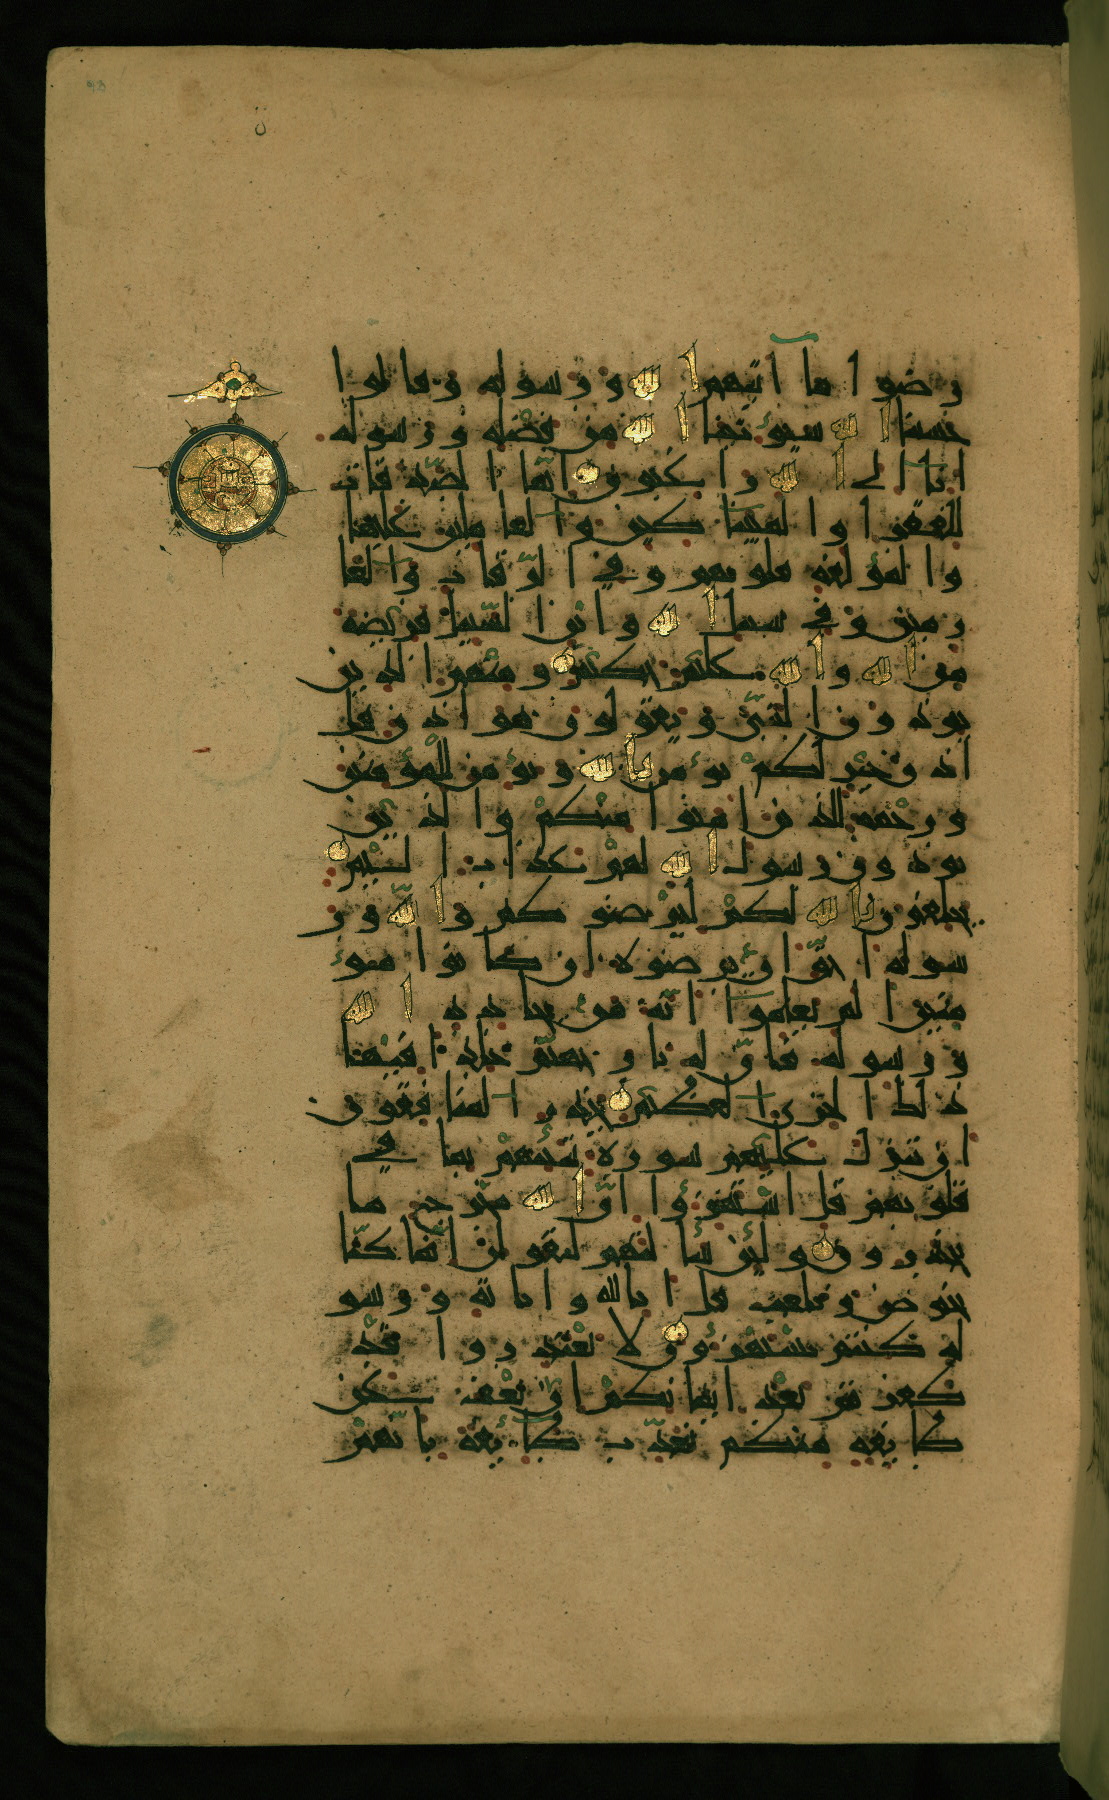 رضوا ما آتيهم الله ورسوله وقالوا
حسبنا الله سيؤتينا الله من فضله ورسوله
انا الى الله راغبون انما الصدقات
للفقرا والمسكين والعاملين عليها
والمؤلفة قلوبهم وفي الرقاب والغا
رمين وفي سبيل الله وابن السبيل فريضة
من الله والله عليم حكيم ومنهم الذين
يؤذون النبي ويقولون هو اذن قل
اذن خير لكم يؤمن بالله ويؤمن للمؤمنين
ورحمة للذين امنوا منكم والذين
يؤذون رسول الله لهم عذاب اليم
يحلفون بالله لكم ليرضوكم والله ور
سوله احق ان يرضوه ان كانوا مؤ
منين الم يعلموا انه من يحادد الله
ورسوله فان له نار جهنم خلدا فيها
ذلك الخزي العظيم يحذر المنافقون
ان تنزل عليهم سورة تنبئهم بما في
قلوبهم قل استهزؤا ان الله مخرج ما
تحذرون ولئن سالتهم ليقولن انما كنا
نخوض ونلعب قل ابالله واياته ورسو
له كنتم تستهزؤن لا تعتذروا قد
كفرتم بعد ايمانكم ان نعف عن
طايفة منكم نعذب طايفة بانهم